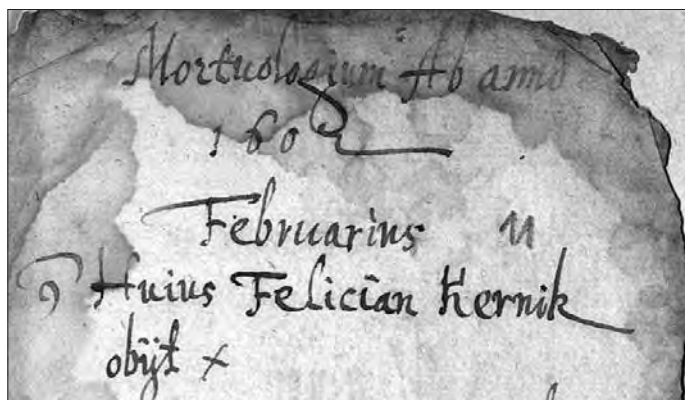 Mortuologium Ab anno
1602
Februarius 11
9 Huius Felician Kernik
obÿt ×